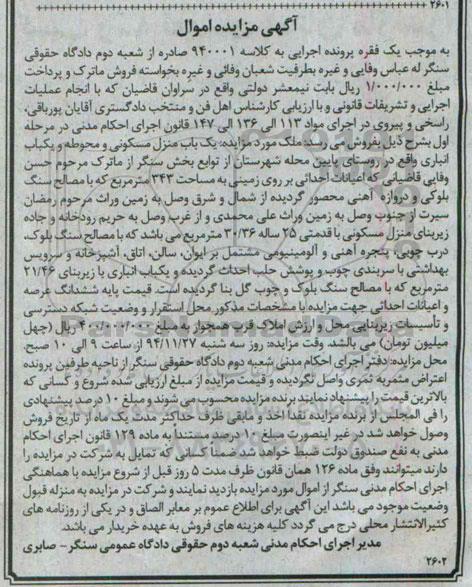 ۲۶۰۱
آگهی مزایده اموال
به موجب یک فقره پرونده اجرایی به کلاسه ۹۴۰۰۰۱ صادره از شعبه دوم دادگاه حقوقی
سنگر له عباس وفایی و غیره بطرفیت شعبان وفائی و غیره بخواسته فروش ماترک و پرداخت
مبلغ ۱/۰۰۰/۰۰۰ ریال بابت نیمعشر دولتی واقع در سراوان قاضیان که با انجام عملیات
اجرایی و تشریفات قانونی و با ارزیابی کارشناس اهل فن و منتخب دادگستری آقایان پورباقی،
راسخی و پیروی در اجرای مواد ۱۱۳ الی ۱۳۶ الی ۱۴۷ قانون اجرای احکام مدنی در مرحله
اول بشرح ذیل بفروش می رسد: ملک مورد مزایده: یک باب منزل مسکونی و محوطه و یکباب
انباری واقع در روستای پایین محله شهرستان از توابع بخش سنگر از ماترک مرحوم حسن
وفایی قاضیانی که اعیانات احداثی بر روی زمینی به مساحت ۳۴۳ مترمربع که با مصالح سنگ
بلوکی و دروازه آهنی محصور گردیده از شمال و شرق وصل به زمین وراث مرحوم رمضان
سیرت از جنوب وصل به زمین وراث علی محمدی و از غرب وصل به حریم رودخانه و جاده
زیربنای منزل مسکونی با قدمتی ۲۵ ساله ۳۰/۳۶ مترمربع می باشد که با مصالح سنگ بلوک،
درب چوبی، پنجره آهنی و آلومینیومی مشتمل بر ایوان، سالن، اتاق، آشپزخانه و سرویس
بهداشتی با سربندی چوب و پوشش حلب احداث گردیده و یکباب انباری با زیربنای ۲۱/۴۶
مترمربع که با مصالح سنگ بلوک و چوب گل بنا گردیده است. قیمت پایه ششدانگ عرصه
و اعیانات احداثی جهت مزایده با مشخصات مذکور محل استقرار و وضعیت شبکه دسترسی
و تأسیسات زیربنایی محل و ارزش املاک قرب همجوار به مبلغ ۴۰۰/۰۰۰/۰۰۰ ریال (چهل
میلیون تومان) می باشد. وقت مزایده: روز سه شنبه ۹۴/۱۱/۲۷ از ساعت ۹ الی ۱۰ صبح.
محل مزایده: دفتر اجرای احکام مدنی شعبه دوم دادگاه حقوقی سنگر از ناحیه طرفین پرونده
اعتراض مثمربه ثمری واصل نگردیده و قیمت مزایده از مبلغ ارزیابی شده شروع و کسانی که
بالاترین قیمت را پیشنهاد نمایند برنده مزایده محسوب می شوند و مبلغ ۱۰ درصد پیشنهادی
را فی المجلس از برنده مزایده نقدا اخذ و مابقی ظرف حداکثر مدت یک ماه از تاریخ فروش
وصول خواهد شد در غیر اینصورت مبلغ ۱۰ درصد مستنداً به ماده ۱۲۹ قانون اجرای احکام
مدنی به نفع صندوق دولت ضبط خواهد شد ضمنا کسانی که تمایل به شرکت در مزایده را
دارند میتوانند وفق ماده ۱۲۶ همان قانون ظرف مدت ۵ روز قبل از شروع مزایده با هماهنگی
اجرای احکام مدنی سنگر از اموال مورد مزایده بازدید نمایند و شرکت در مزایده به منزله قبول
وضعیت موجود می باشد این آگهی برای اطلاع عموم بر معابر الصاق و در یکی از روزنامه های
کثیرالانتشار محلی درج می گردد کلیه هزینه های فروش به عهده خریدار می باشد.
مدیر اجرای احکام مدنی شعبه دوم حقوقی دادگاه عمومی سنگر – صابری
۲۶۰۲